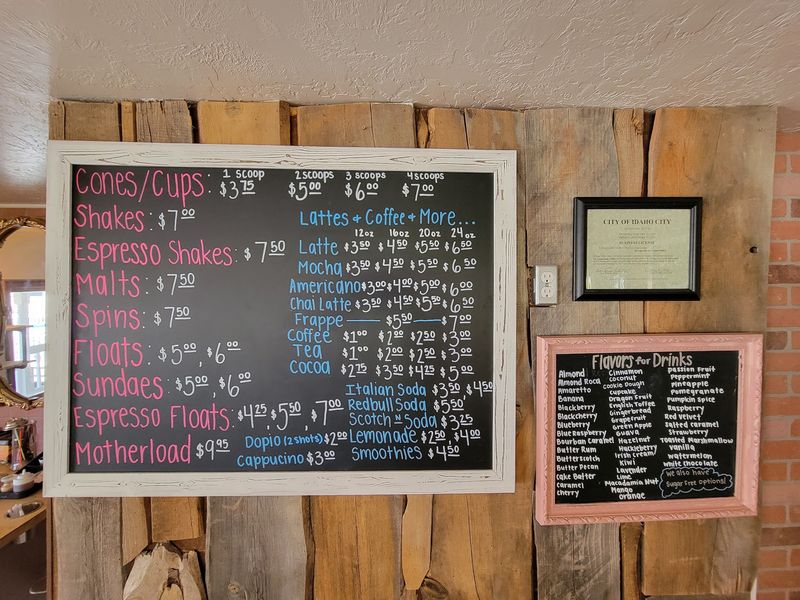 1 scoop 2 scoops 3 scoops 4 scoops
Cones/Cups: $3.75 $5.00 $6.00 $7.00
Shakes: $7.00
Espresso Shakes: $7.50
Malts: $7.50
Spins: $7.50
Floats: $5.00, $6.00
Sundaes: $5.00, $6.00
Espresso Floats: $4.25, $5.50, $7.00
Motherload $9.95
Lattes & Coffee & More...
12oz 16oz 20oz 24oz
Latte $3.50 $4.50 $5.50 $6.50
Mocha $3.50 $4.50 $5.50 $6.50
Americano $3.00 $4.00 $5.00 $6.00
Chai Latte $3.50 $4.50 $5.50 $6.50
Frappe $5.50 $7.00
Coffee $1.00 $2.00 $2.50 $3.00
Tea $1.00 $2.00 $2.50 $3.00
Cocoa $2.75 $3.50 $4.25 $5.00
Italian Soda $3.50, $4.50
Redbull Soda $5.50
Scotch N Soda $3.25
Dopio (2 shots) $2.00
Lemonade $2.50, $4.00
Cappucino $3.00
Smoothies $4.50
CITY OF IDAHO CITY
BUSINESS LICENSE
Flavors for Drinks
Almond
Almond Roca
Amaretto
Banana
Blackberry
Blackcherry
Blueberry
Blue Raspberry
Bourban Caramel
Butter Rum
Butterscotch
Butter Pecan
Cake Batter
Caramel
Cherry
Cinnamon
Coconut
Cookie Dough
Cupcake
Dragon Fruit
English Toffee
Gingerbread
Grapefruit
Green Apple
Guava
Hazelnut
Huckleberry
Irish Cream
Kiwi
Lavender
Lime
Macadamia Nut
Mango
Orange
Passion Fruit
Peppermint
Pineapple
Pomegranate
Pumpkin Spice
Raspberry
Red Velvet
Salted Caramel
Strawberry
Toasted Marshmallow
Vanilla
Watermelon
White Chocolate
We also have
Sugar Free Options!